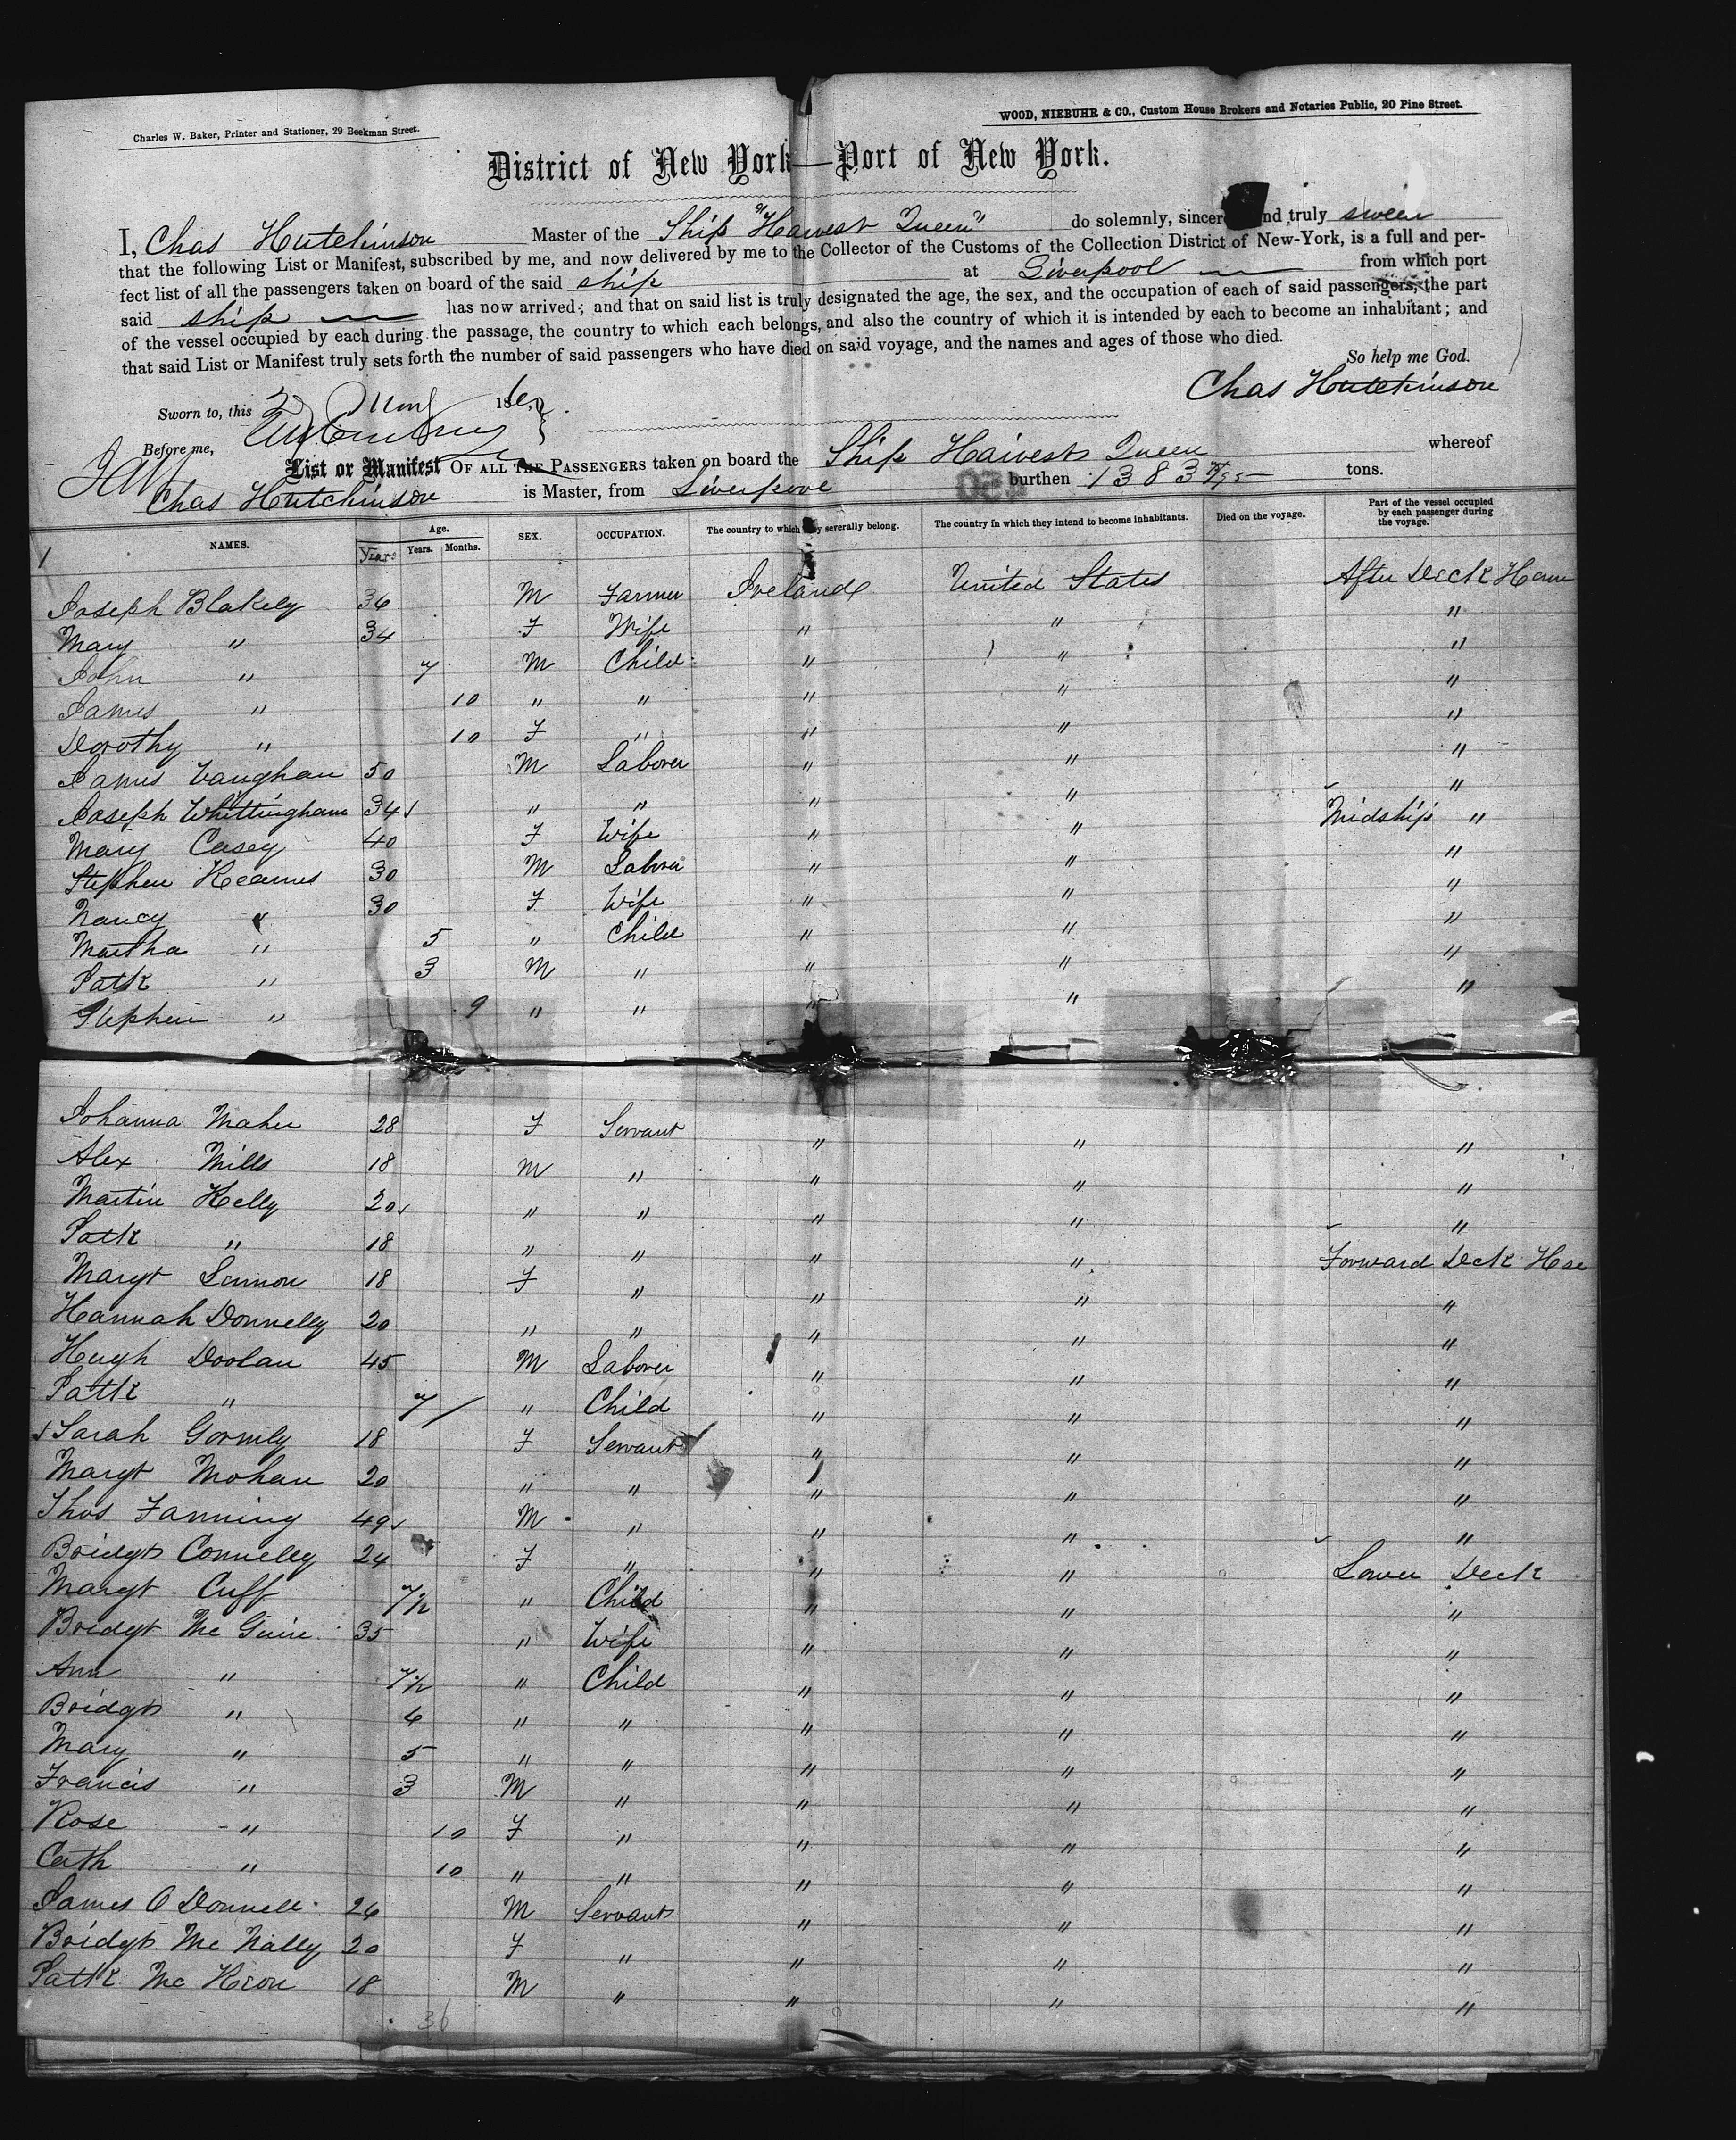 Charles W. Baker, Printer and Stationer, 29 Beekman Street.
WOOD, NIEBUHR & CO., Custom House Brokers and Notaries Public, 20 Pine Street.
District of New York—Port of New York.
I, Chas Hutchinson Master of the Ship "Harvest Queen" do solemnly, sincere nd truly swear
that the following List or Manifest, subscribed by me, and now delivered by me to the Collector of the Customs of the Collection District of New-York, is a full and per-
fect list of all the passengers taken on board of the said ship at Liverpool from which port
said ship has now arrived; and that on said list is truly designated the age, the sex, and the occupation of each of said passengers, the part
of the vessel occupied by each during the passage, the country to which each belongs, and also the country of which it is intended by each to become an inhabitant; and
that said List or Manifest truly sets forth the number of said passengers who have died on said voyage, and the names and ages of those who died.
So help me God.
Chas Hutchinson
Sworn to, this 186
Before me,
List or Manifest OF ALL THE PASSENGERS taken on board the Ship Harvest Queen whereof
Chas Hutchinson is Master, from Liverpool burthen 1383 tons.
NAMES. Age. Years. Years. Months. SEX. OCCUPATION. The country to which they severally belong. The country in which they intend to become inhabitants. Died on the voyage. Part of the vessel occupied by each passenger during the voyage.
1
Joseph Blakely 36 M Farmer Ireland United States After Deck House
Mary " 34 F Wife " " "
John " 7 M Child " " "
James " 10 " " " " "
Dorothy " 10 F " " " "
James Vaughan 50 M Laborer " " "
Joseph Whittingham 34 " " " " "
Mary Casey 40 F Wife " " Midship "
Stephen Kearns 30 M Laborer " " "
Nancy " 30 F Wife " " "
Martha " 5 " Child " " "
Patk " 3 M " " " "
Stephen " 9 " " " " "
Johanna Maher 28 F Servant " " "
Alex Mills 18 M " " " "
Martin Kelly 20 " " " " "
Patk " 18 " " " " Forward Deck Hse
Margt Lennon 18 F " " " "
Hannah Donnelly 20 " " " " "
Hugh Doolan 45 M Laborer " " "
Patk " 7 " Child " " "
Sarah Gormly 18 F Servant " " "
Margt Mohan 20 " " " " "
Thos Fanning 49 M " " " "
Bridgt Connelly 24 F " " " Lower Deck
Margt Cuff 7½ " Child " " "
Bridgt Mc Guire 35 " Wife " " "
Ann " 7½ " Child " " "
Bridgt " 6 " " " " "
Mary " 5 " " " " "
Francis " 3 M " " " "
Rose " 10 F " " " "
Cath " 10 " " " " "
James O Donnell 26 M Servant " " "
Bridgt Mc Nally 20 F " " " "
Patk Mc Keon 18 M " " " "
36